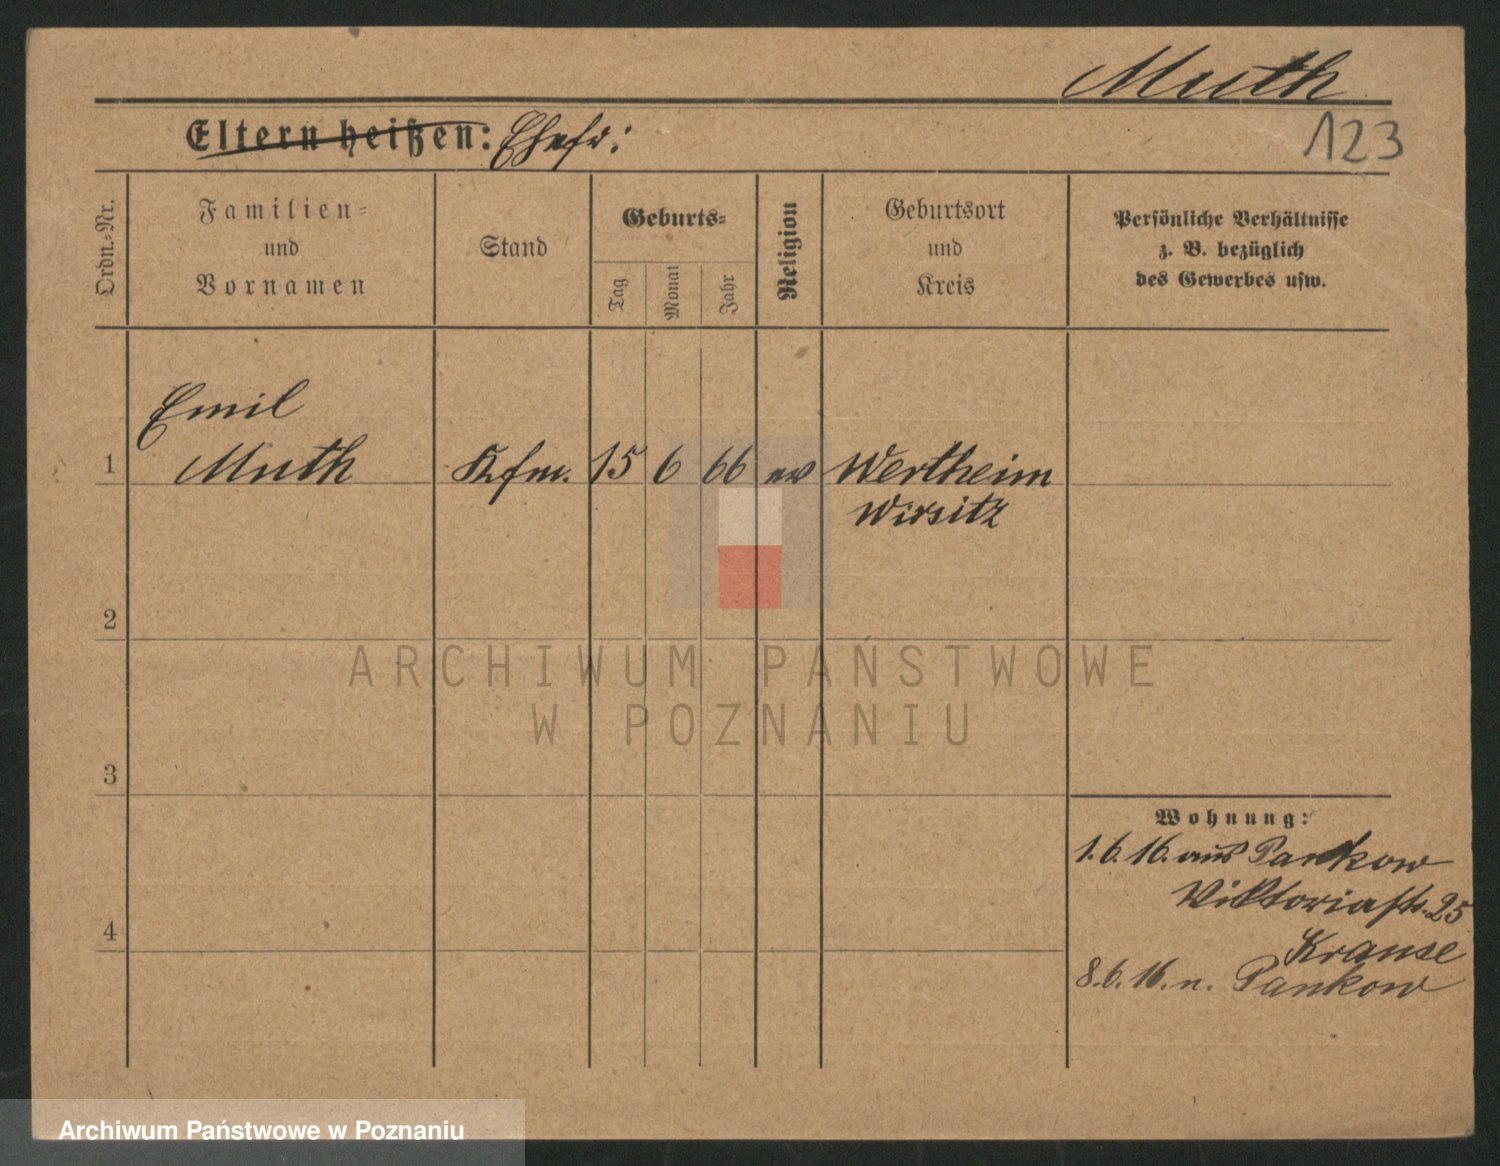 Muth
Eltern heißen: Ehefr:
123
Ordn.-Nr.
Familien-
und
Vornamen
Stand
Geburts-
Tag
Monat
Jahr
Religion
Geburtsort
und
Kreis
Persönliche Verhältnisse
z. B. bezüglich
des Gewerbes usw.
Emil
1 Muth Kfm. 15 6 66 ev Wertheim
Wirsitz
2
ARCHIWUM PAŃSTWOWE
W POZNANIU
3
Wohnung:
1.6.16. aus Pankow
Viktoriastr. 25
4
Krause
8.6.16. n. Pankow
Archiwum Państwowe w Poznaniu